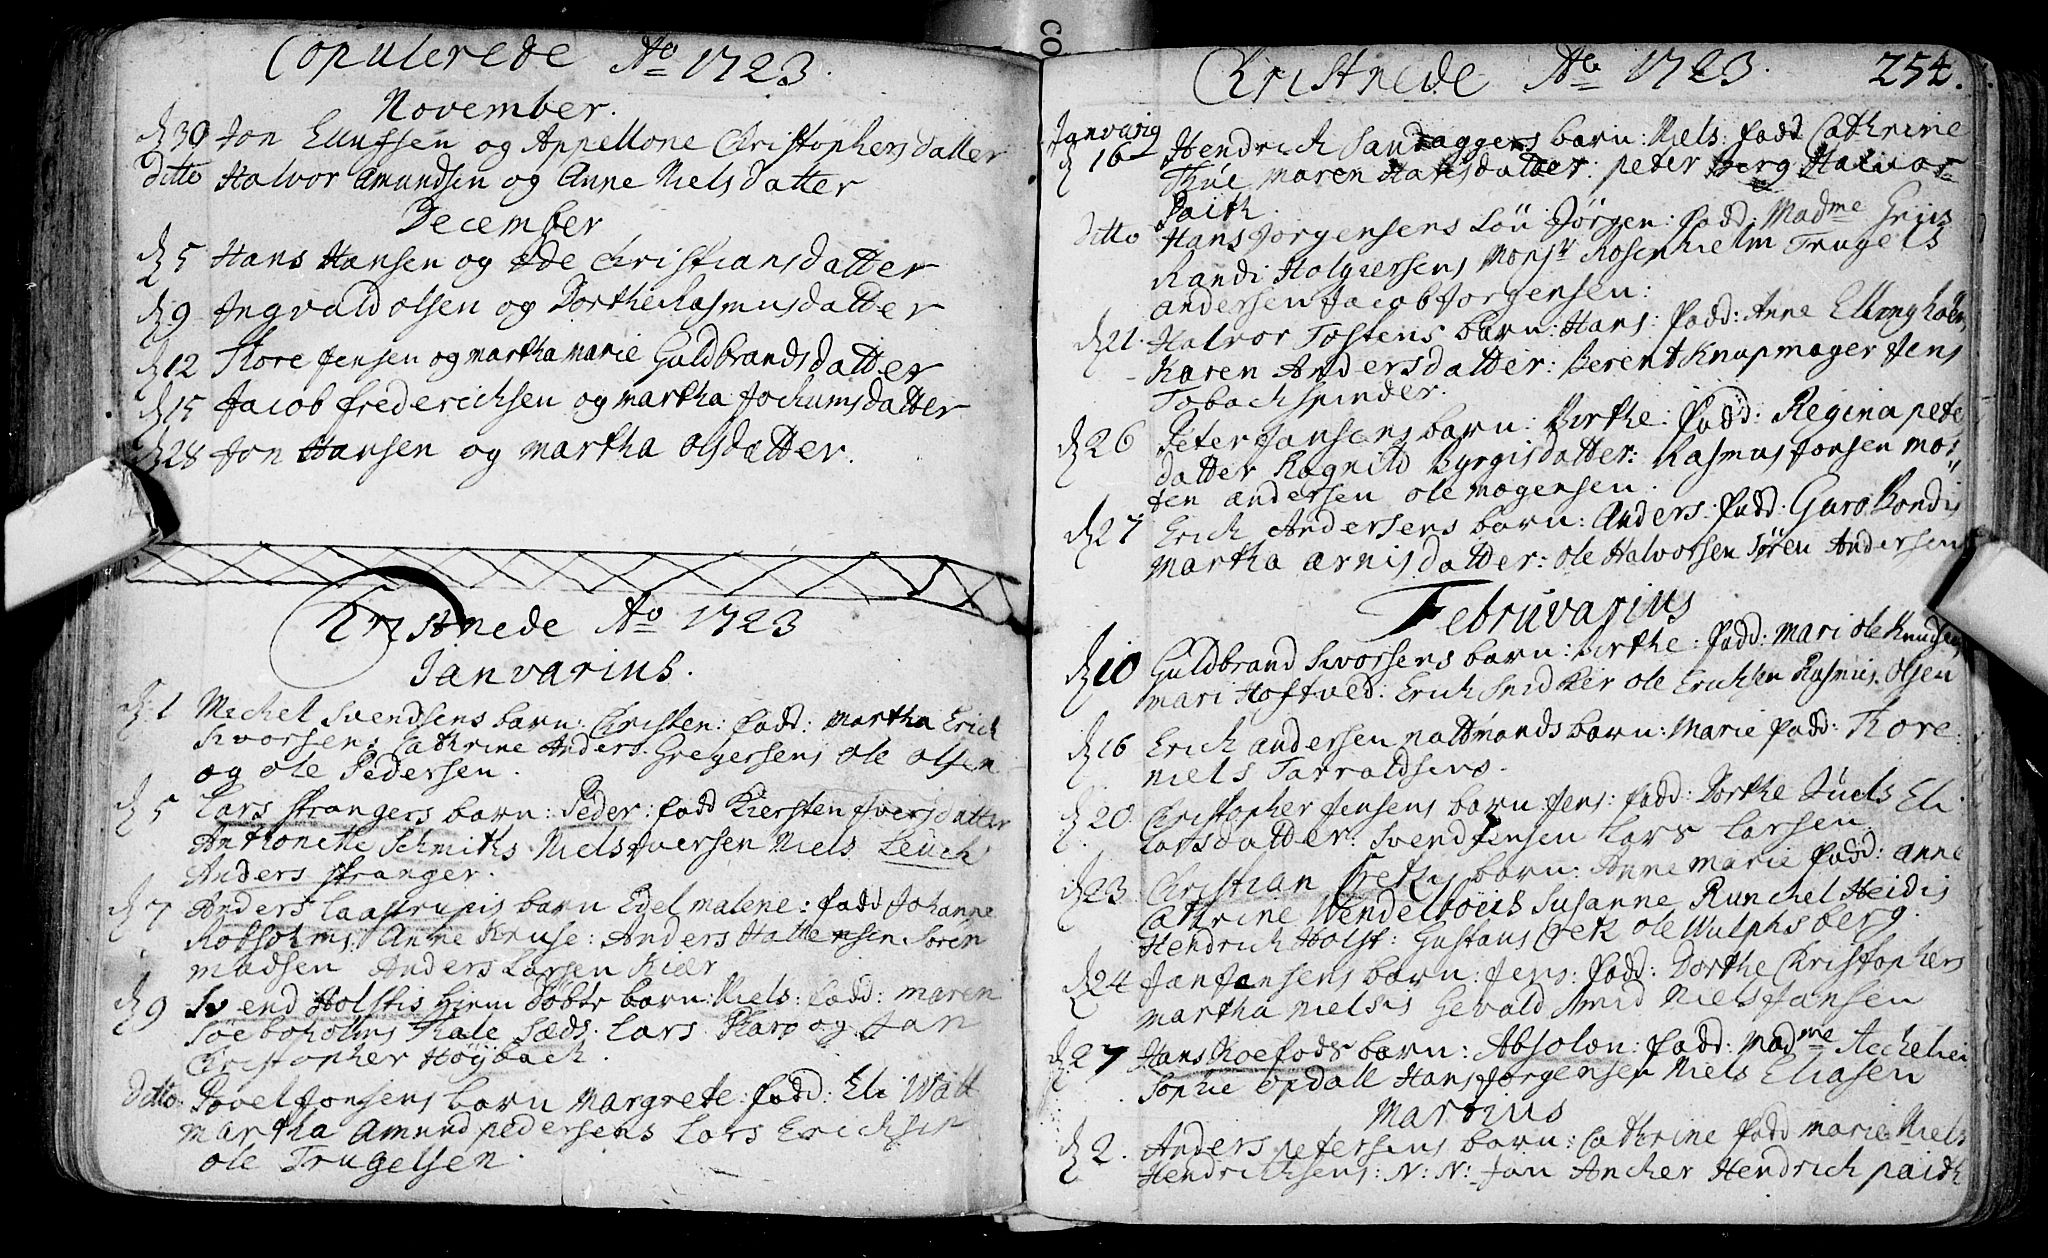 Copulerede Ao 1723.
November.
d 30 Jon Ellufsen og Appellone Christophersdatter
ditto Halvor Amundsen og Anne Nielsdatter
December
d 5 Hans Hansen og Ede Christiansdatter
d 9 Ingvald olsen og Dorthe Rasmusdatter
d 12 Thore Jensen og martha marie Guldbrandsdatter
d 15 Jacob frederichsen og martha Jochumsdatter
d 28 Jon Hansen og martha olsdatter.
Christnede Ao 1723
Janvarius.
d. 1 Michel Svendsens barn: Christen: fadd: martha Erich
Sivorsens Cathrine Anders Gregersens ole olsen
og ole Pedersen.
d 5 Lars strangers barn: Peder: fadd Kiersten Iversdatter
Anthonette Schmiths Niels Iversen Niels Leuch
Anders stranger.
d 7 Anders Laastrupis barn Edel malene: fadd Johanne
Robsohms. Anne Kruse: Anders Hallensen Søren
madsen Anders Larsen Kiær
d 9 Svend Holstis barn: Niels: fadd: maren
Søeboholms Thale Sæds. Lars og Jan
Christopher Høybach.
Ditto Povel Jonsens barn margrete: fadd: Eli Watt
martha Amund pedersens Lars Erichsen
ole Trugelsen.
Christnede Ao 1723. 254.
Janvarig
d 16 Hendrich Sandaggers barn: Niels. fadd Cathrine
Thue maren Hansdatter: peter Berg Halvor
Paith.
ditto Hans Jorgensens Søn Jørgen: fadd: Madme Griis
Randi Holgiersens Monsr Rosenhielm Trugels
andersen Jacob Jorgensen:
d 21. Halvor Tostens barn: Hans: fadd: Anne Ellingholm
Karen Andersdatter: Berent Knapmager Jens
Tobachspinder.
d 26 Peter Jansens barn: Birthe: fadd: Regina pete
datter Ragnild Byrgisdatter: Rasmus Jonsen mor
ten andersen ole mogensen.
d 27 Erich Andersens barn: Anders: fadd: Guro Bondis
Martha arnisdatter: ole Halvorsen Søren Andersens
Februvarius
d 10 Guldbrand Sivorsens barn: Birthe: fadd: Mari ole Knudsens
mari Hoftved: Erich Snidker ole Erichsen Rasmus Olsen
d 16 Erich andersen nattmands barn: Marie fadd: Thore:
Niels Tarraldsens.
d 20 Christopher Jensens barn Jens: fadd: Dorthe Juels Eli
Larsdatter: Svend Jensen Lars Larsen
d 23. Christian barn: Anne marie fadd: anne
Cathrine Wendelboeis Susanne Runchel Heidis
Hendrich Holst: Gustaus ole Wulphsberg.
d 24 Jan Jansens barn: Jens: fadd: Dorthe Christophers
martha Nielsis Gevald Smid Niels Jansen
d 27 Hans Koefods barn: Absolon: fadd: Madme
Sophie opdall Hans Jørgensen Niels Eliasen
Martius
d 2. Anders petersens barn: Cathrine fadd marie Niels
Hendrichsens: N: N: Jan Ancher Hendrich paith